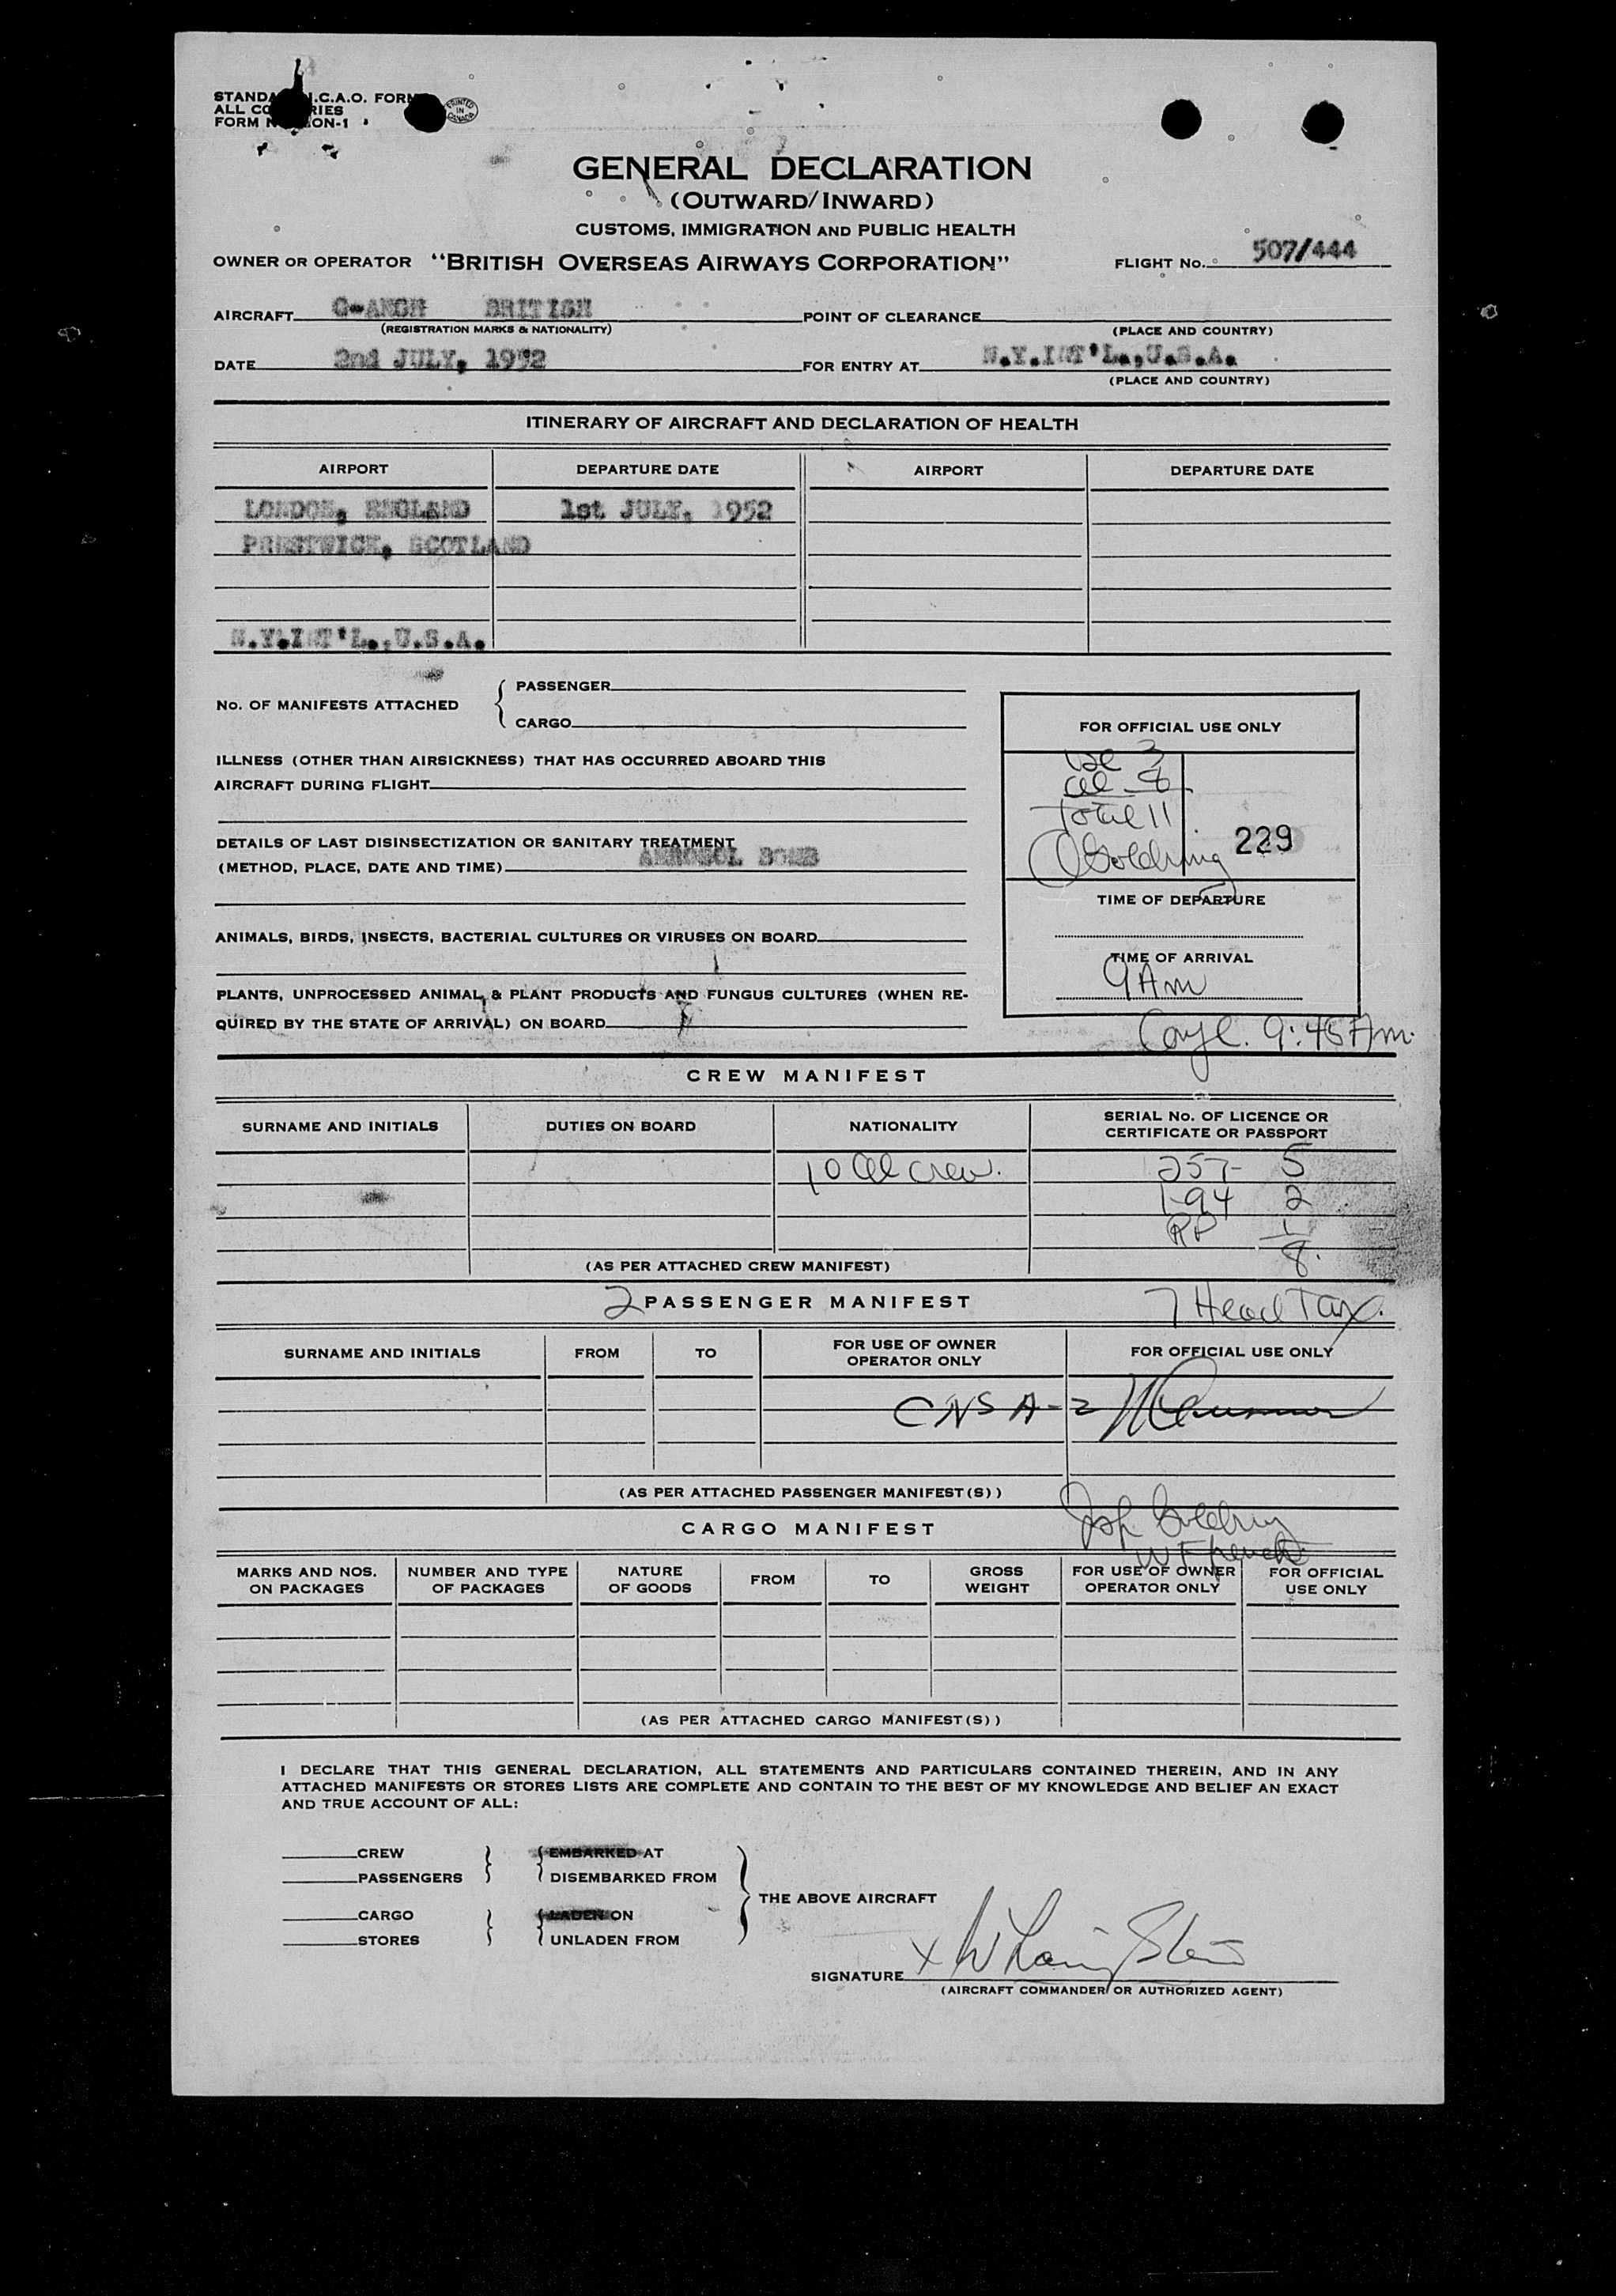 STANDA I.C.A.O. FORM
ALL CO RIES
FORM N ON-1
PRINTED IN CANADA
GENERAL DECLARATION
(OUTWARD/INWARD)
CUSTOMS, IMMIGRATION AND PUBLIC HEALTH
OWNER OR OPERATOR "BRITISH OVERSEAS AIRWAYS CORPORATION" FLIGHT No. 507/444
AIRCRAFT BRITISH POINT OF CLEARANCE
(REGISTRATION MARKS & NATIONALITY) (PLACE AND COUNTRY)
DATE 2nd JULY, 1952 FOR ENTRY AT N.Y.INT'L.,U.S.A.
(PLACE AND COUNTRY)
ITINERARY OF AIRCRAFT AND DECLARATION OF HEALTH
AIRPORT DEPARTURE DATE AIRPORT DEPARTURE DATE
LONDON, ENGLAND 1st JULY, 1952
PRESTWICK, SCOTLAND
N.Y.INT'L.,U.S.A.
No. OF MANIFESTS ATTACHED { PASSENGER
CARGO
ILLNESS (OTHER THAN AIRSICKNESS) THAT HAS OCCURRED ABOARD THIS
AIRCRAFT DURING FLIGHT
DETAILS OF LAST DISINSECTIZATION OR SANITARY TREATMENT
(METHOD, PLACE, DATE AND TIME) AEROSOL BOMB
ANIMALS, BIRDS, INSECTS, BACTERIAL CULTURES OR VIRUSES ON BOARD
PLANTS, UNPROCESSED ANIMAL & PLANT PRODUCTS AND FUNGUS CULTURES (WHEN RE-
QUIRED BY THE STATE OF ARRIVAL) ON BOARD
FOR OFFICIAL USE ONLY
3
8
Total 11
Goldring 229
TIME OF DEPARTURE
TIME OF ARRIVAL
9 Am
9:45 Am.
CREW MANIFEST
SURNAME AND INITIALS DUTIES ON BOARD NATIONALITY SERIAL No. OF LICENCE OR
CERTIFICATE OR PASSPORT
10 al crew. 257- 5
I-94 2
RP 1
8.
(AS PER ATTACHED CREW MANIFEST)
2 PASSENGER MANIFEST 7 Head Tax.
SURNAME AND INITIALS FROM TO FOR USE OF OWNER
OPERATOR ONLY FOR OFFICIAL USE ONLY
CNSA-2
(AS PER ATTACHED PASSENGER MANIFEST(S))
CARGO MANIFEST Jos. Goldring
W French
MARKS AND NOS.
ON PACKAGES NUMBER AND TYPE
OF PACKAGES NATURE
OF GOODS FROM TO GROSS
WEIGHT FOR USE OF OWNER
OPERATOR ONLY FOR OFFICIAL
USE ONLY
(AS PER ATTACHED CARGO MANIFEST(S))
I DECLARE THAT THIS GENERAL DECLARATION, ALL STATEMENTS AND PARTICULARS CONTAINED THEREIN, AND IN ANY
ATTACHED MANIFESTS OR STORES LISTS ARE COMPLETE AND CONTAIN TO THE BEST OF MY KNOWLEDGE AND BELIEF AN EXACT
AND TRUE ACCOUNT OF ALL:
CREW } { EMBARKED AT
PASSENGERS DISEMBARKED FROM
} THE ABOVE AIRCRAFT
CARGO } { LADEN ON
STORES UNLADEN FROM
SIGNATURE x
(AIRCRAFT COMMANDER OR AUTHORIZED AGENT)